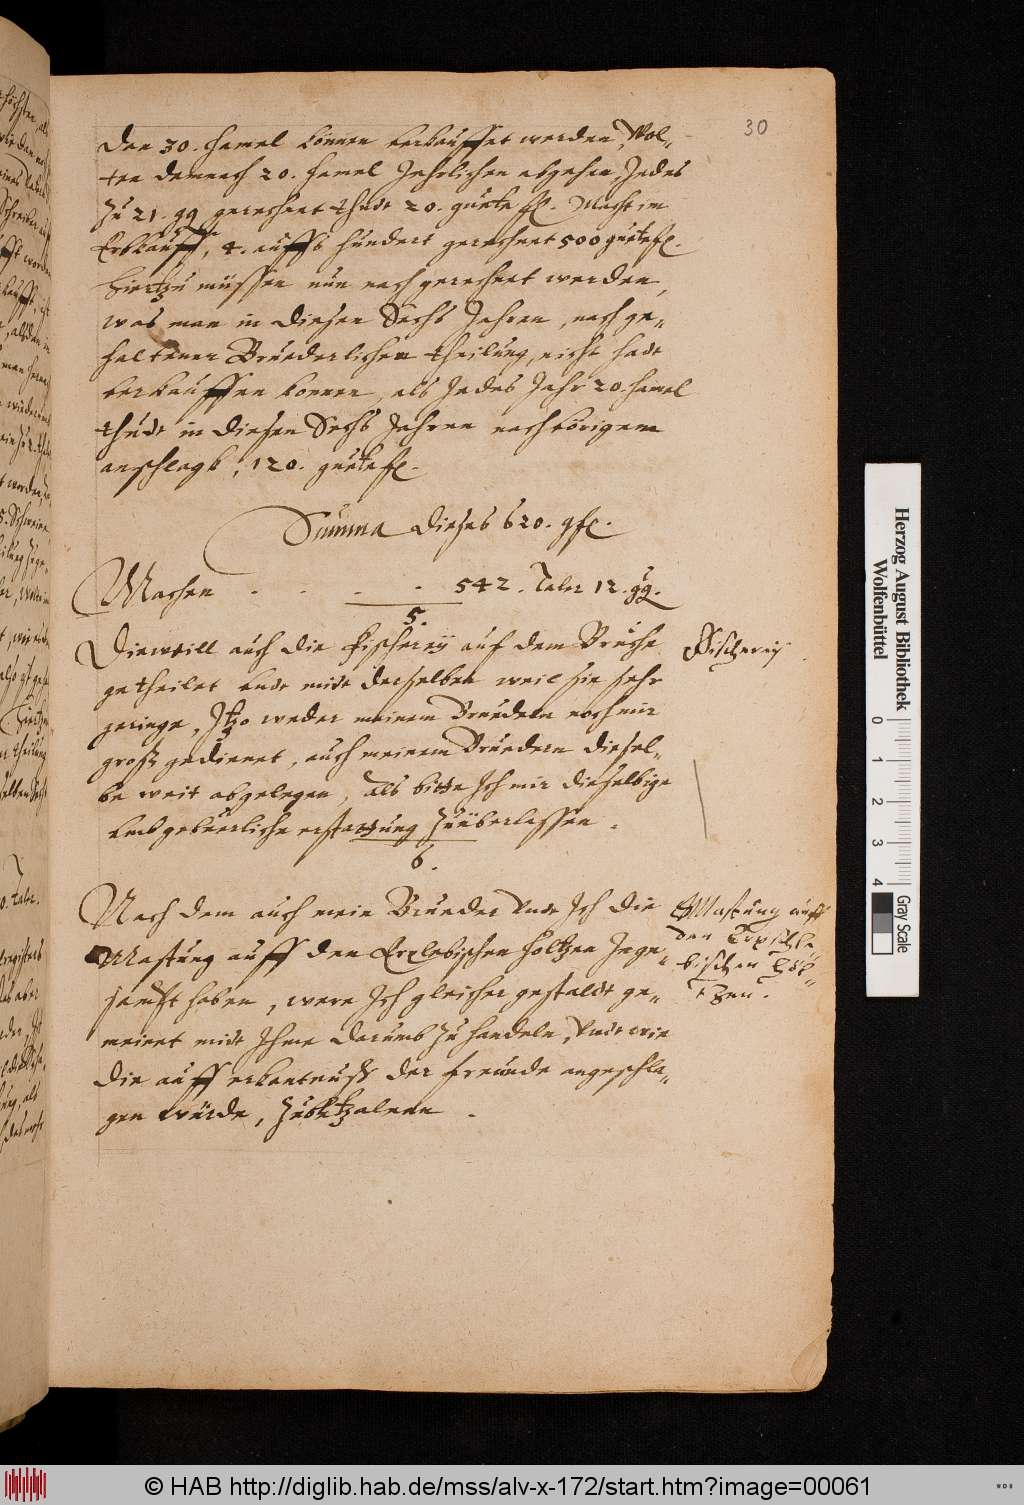 30
den 30. Hamel können verkauffet werden, Wol„
ten demnach 20. Hamel Jehrlichen abgehen Jedes
zu 21. gg gerechnet thudt 20. guete fl. Macht im
Erbkauff, 4. auffs hundert gerechnet 500 guete fl.
Hiertzu müssen nun noch gerechnet werden,
was man in diesen Sechs Jahren, nach ge„
haltener Bruederlichen theilung, nicht hadt
verkauffen können, als Jedes Jahr 20. Hamel
thudt in diesen Sechs Jahren nach vorigem
anschlage, 120. guete fl.
Summa dieses 620. gfl.
Machen . . . . 542. Taler 12. gg.
5.
Dieweill auch die Fischerey auf dem Bruche
getheilet undt midt derselben weil sie sehr
geringe, Itzo weder meinem Bruedern noch mir
groß gedienet, auch meinem Bruedern diesel„
be weit abgelegen, Als bitte Ich mir dieselbige
umb gebuerliche erstattung zuüberlassen.
Fischerey
6.
Nach dem auch mein Brueder undt Ich die
Mastung auff den Erxlebischen Holtzen Inge„
sampt haben, were Ich gleicher gestaldt ge„
meinet midt Ihme darumb zu handeln, Undt wie
die auff erkantnuß der Freunde angeschla„
gen würde, zubetzalenn.
Mastung auff
den Erxsle„
bischen Höl„
tzen.
Herzog August Bibliothek
Wolfenbüttel
0 1 2 3 4
Gray Scale
© HAB http://diglib.hab.de/mss/alv-x-172/start.htm?image=00061